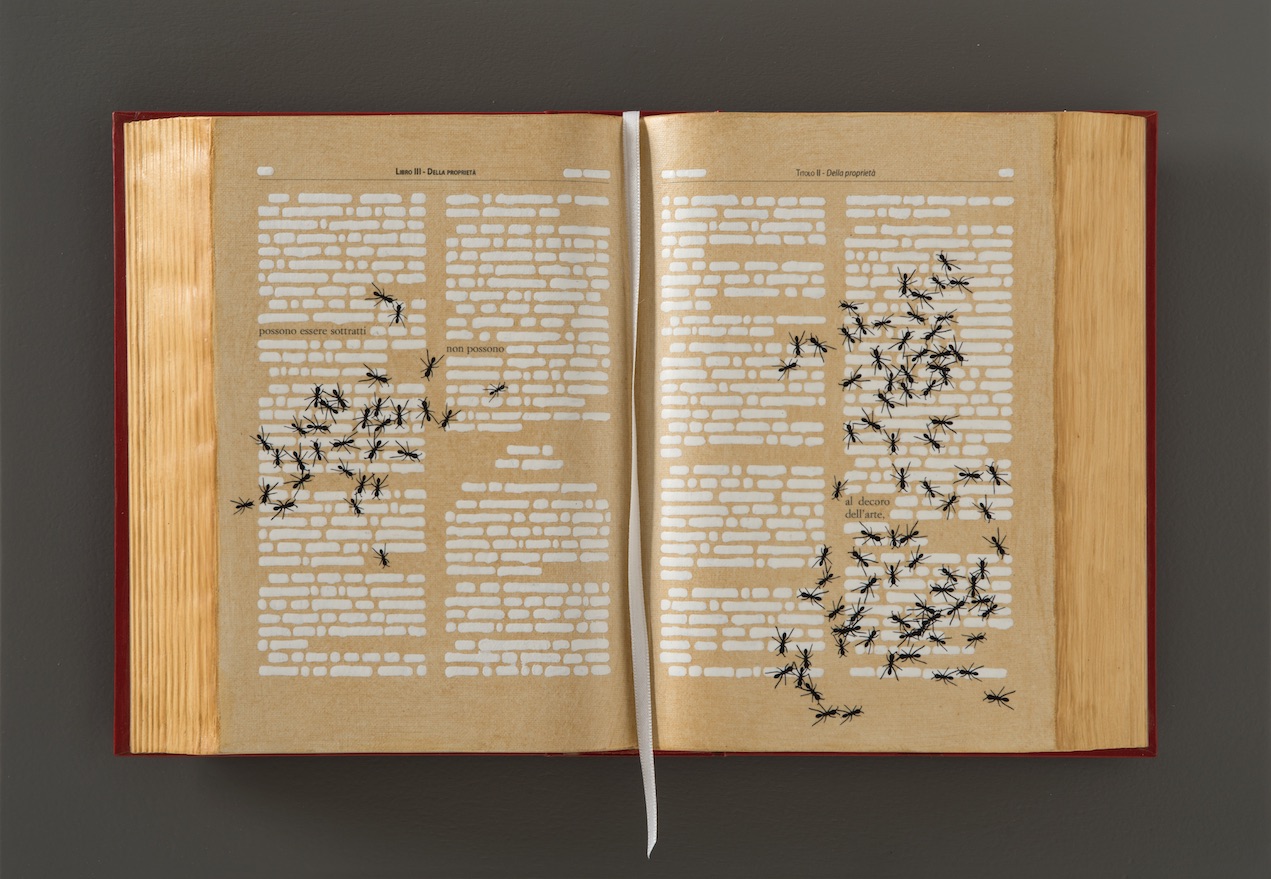 Libro III - Della proprietà
possono essere sottratti
non possono
Titolo II - Della proprietà
al decoro
dell'arte,